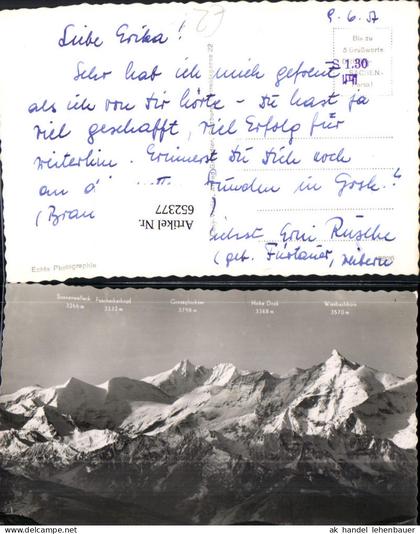 9. 6. 57
Liebe Erika!
Sehr hab ich mich gefreut
als ich von Dir hörte - Du hast ja
viel geschafft, viel Erfolg für
weiterhin. Erinnerst Du Dich noch
an
Stunden in Gosk.?
(Brau
Erni Rusche
(geb.
Bis zu
5 Grußworte
S 1.30
Artikel Nr.
652377
Echte Photographie
Sonnenwelleck
3266 m
Fuscherkarkopf
3332 m
Grossglockner
3798 m
Hohe Dock
3348 m
Wiesbachhorn
3570 m
ak handel lehenbauer